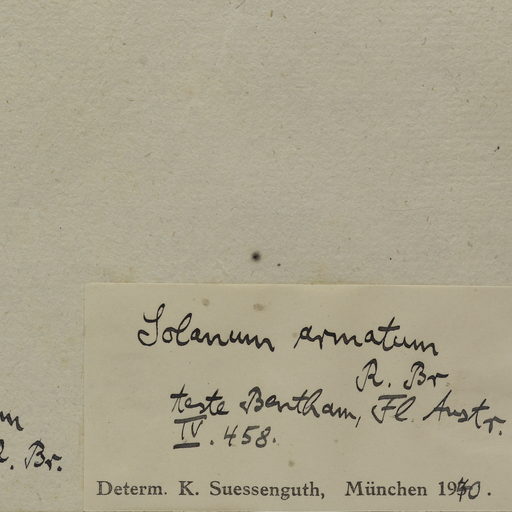 Solanum armatum
R. Br
teste Bentham, Fl. Austr.
IV. 458.
Determ. K. Suessenguth, München 1940.
R. Br.